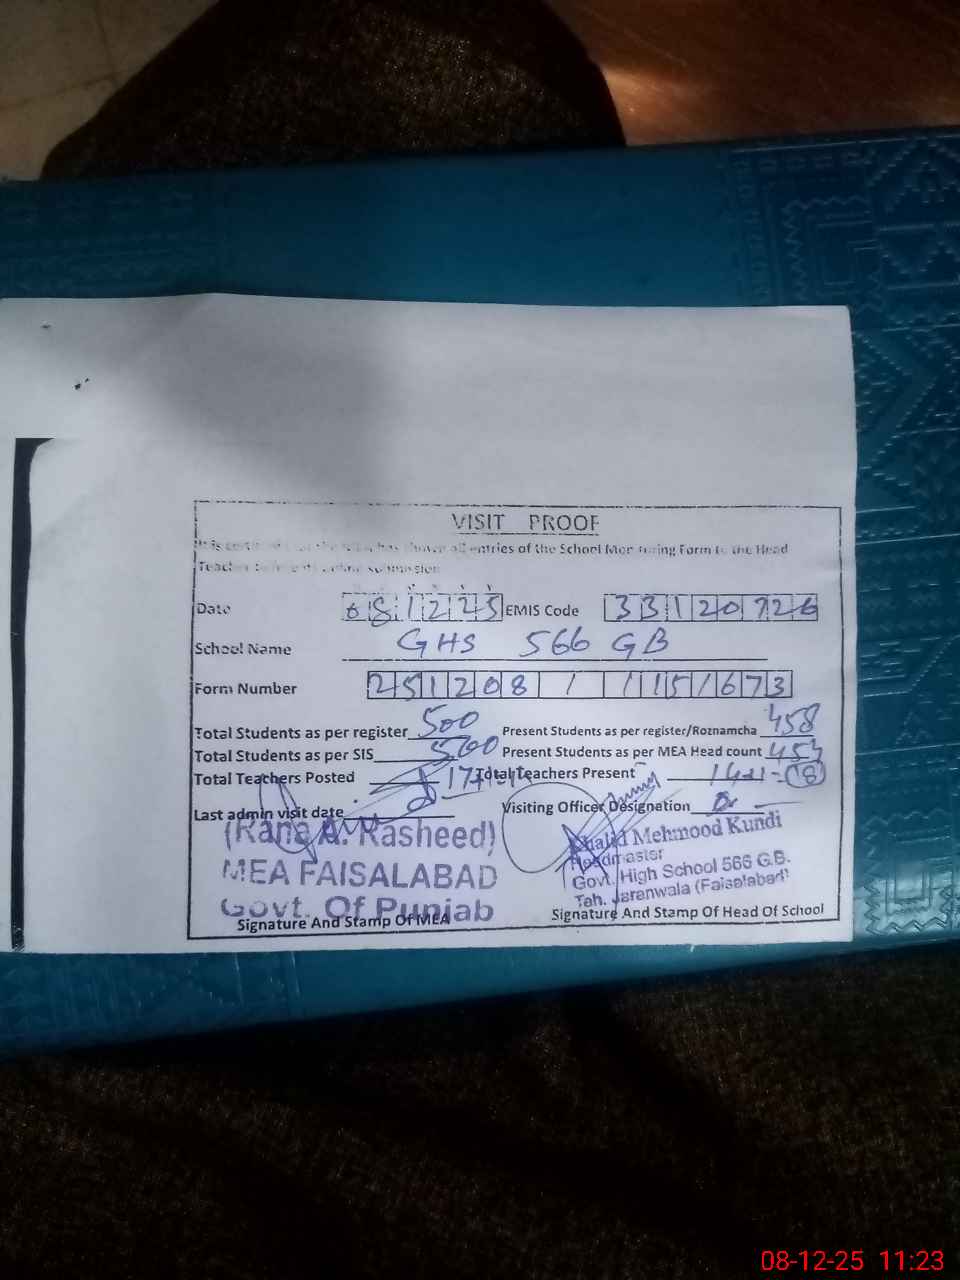 VISIT PROOF
It is certified that the MEA has shown all entries of the School Monitoring Form to the Head
Teacher before its online submission
Date 081225 EMIS Code 33120726
School Name GHS 566 GB
Form Number 251208 / 1151673
Total Students as per register 500 Present Students as per register/Roznamcha 458
Total Students as per SIS 500 Present Students as per MEA Head count
Total Teachers Posted Total Teachers Present
Last admin visit date Visiting Officer Designation
(Rana A. Rasheed)
MEA FAISALABAD
Govt. Of Punjab
Signature And Stamp Of MEA
Khalid Mehmood Kundi
Headmaster
Govt. High School 566 G.B.
Teh. Jaranwala (Faisalabad)
Signature And Stamp Of Head Of School
08-12-25 11:23